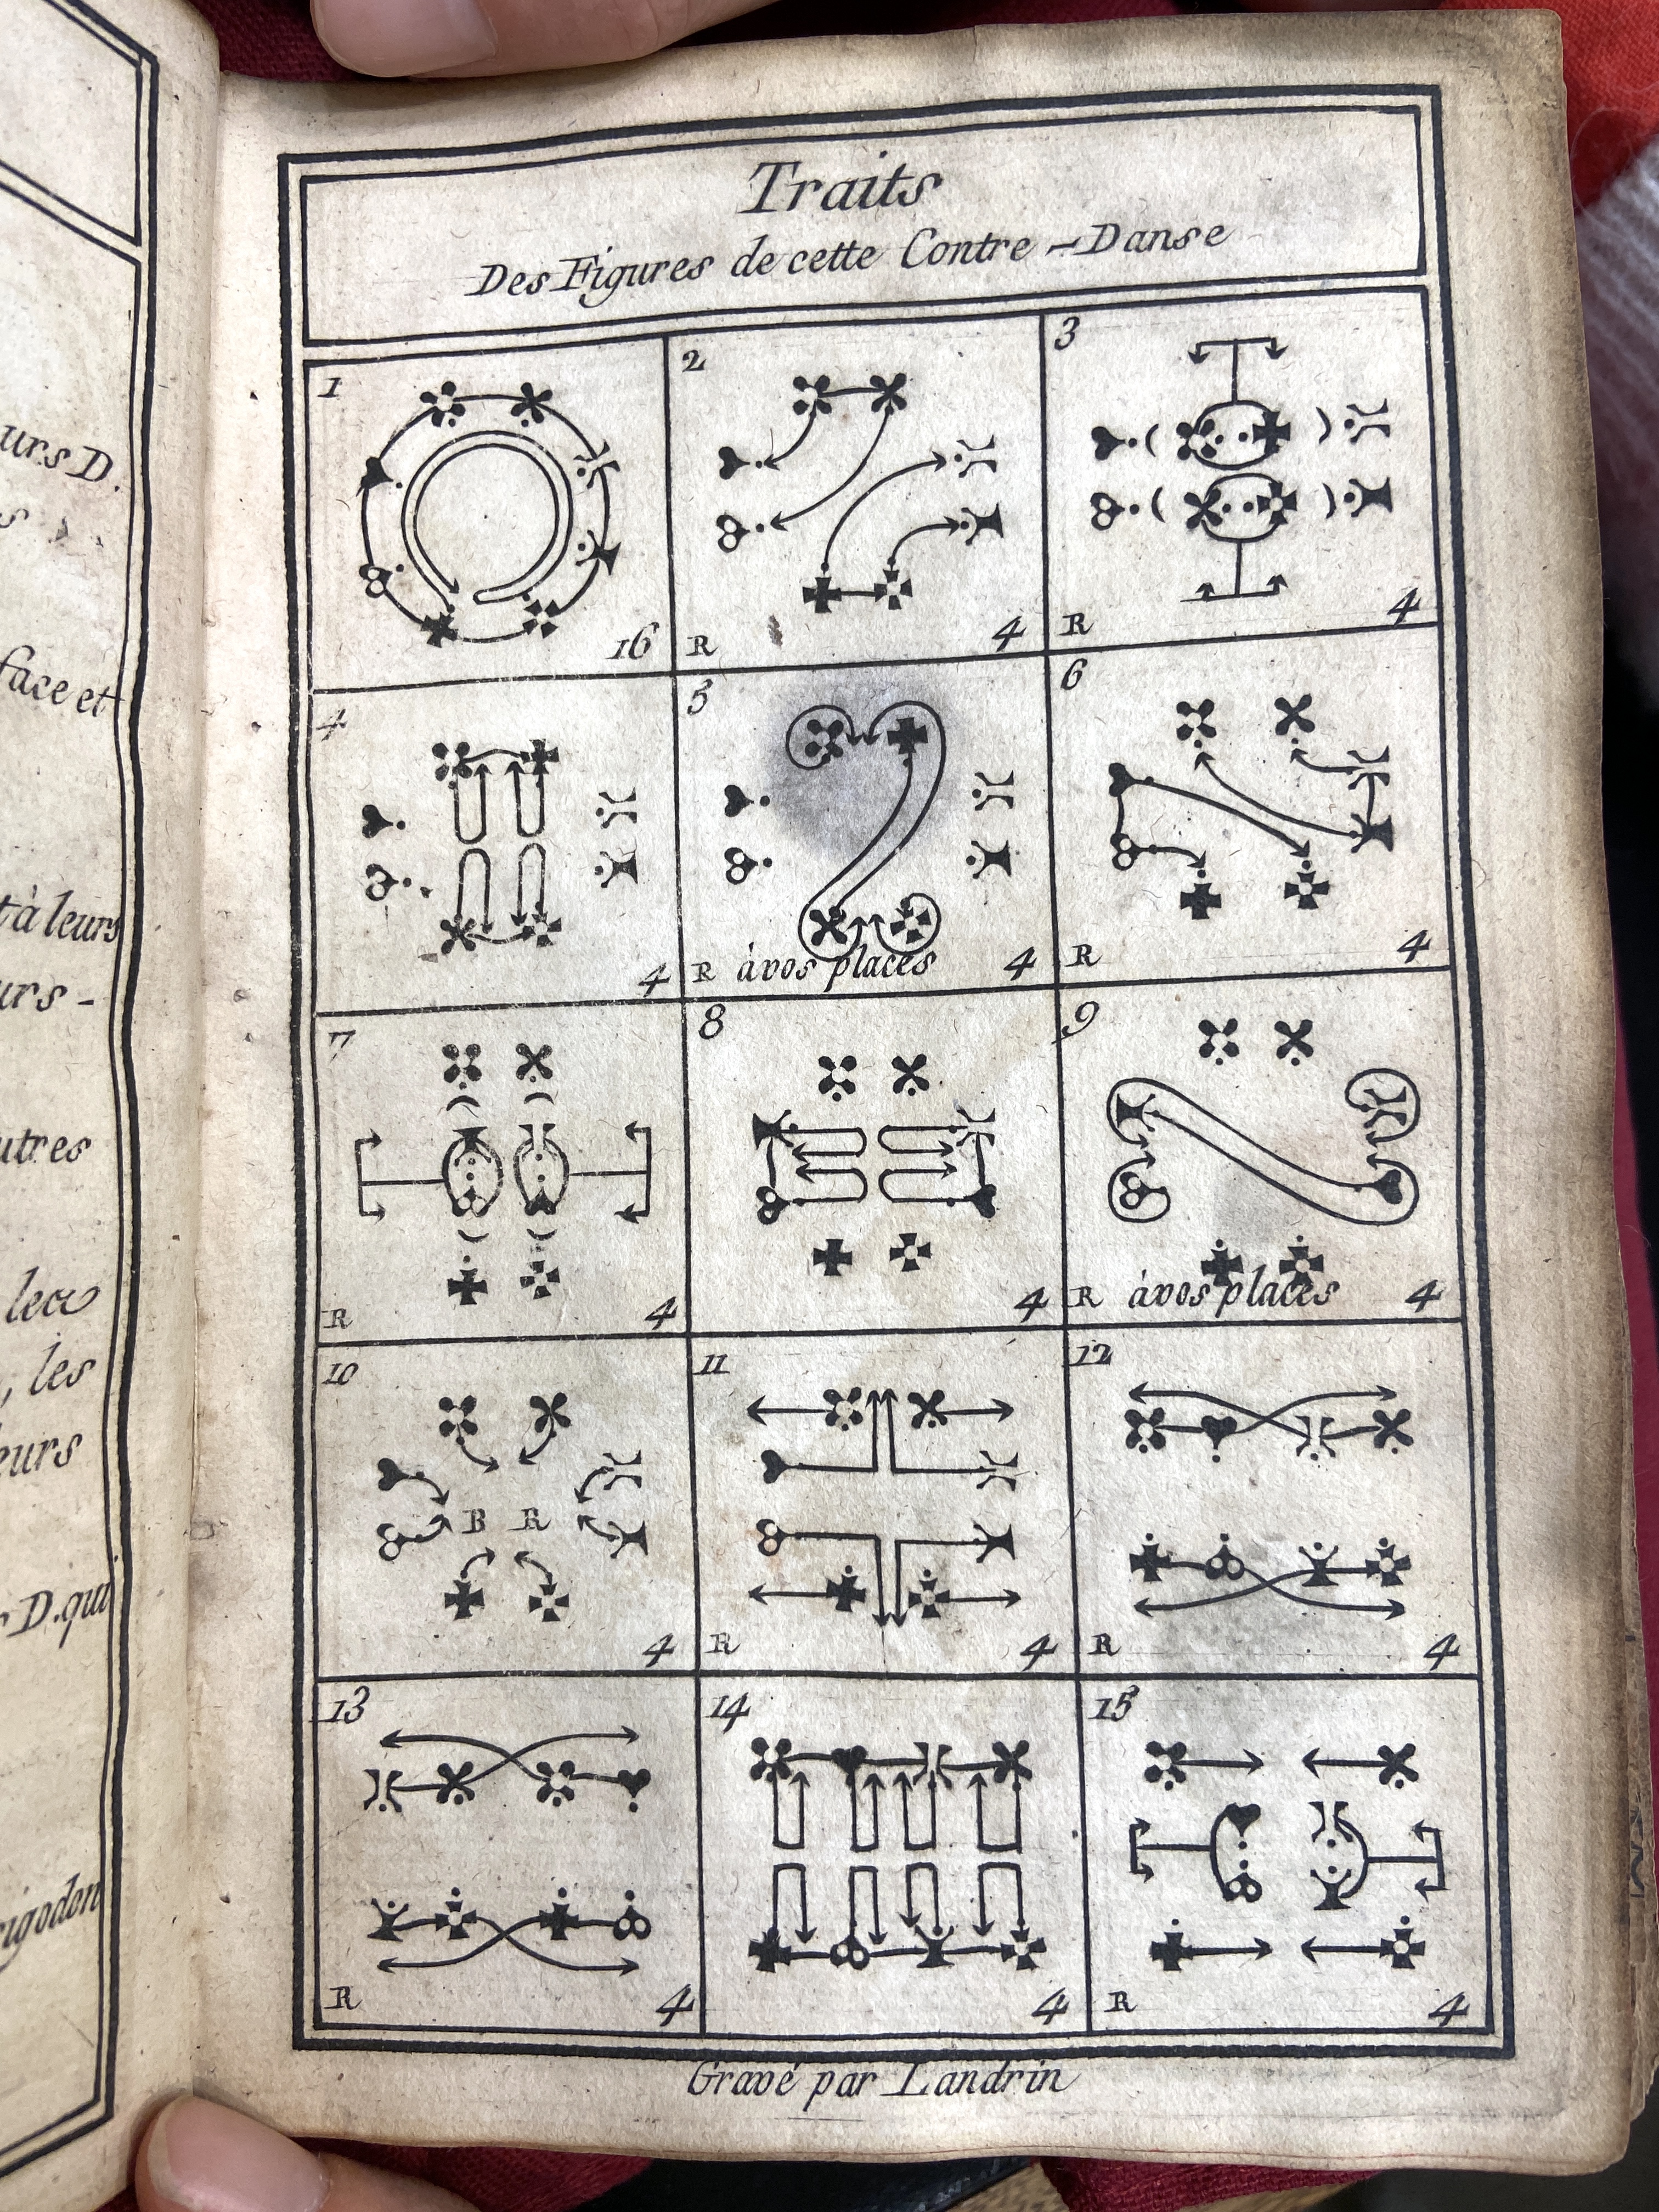 urs D.
s
face et
t à leurs
urs -
utres
lea
, les
leurs
r D. qui
rigodon
Traits
Des Figures de cette Contre-Danse
1
16
2
R 4
3
R 4
4
4
5
R à vos places 4
6
R 4
7
R 4
8
4
9
R à vos places 4
10
R R
4
11
R 4
12
R 4
13
R 4
14
4
15
R 4
Gravé par Landrin